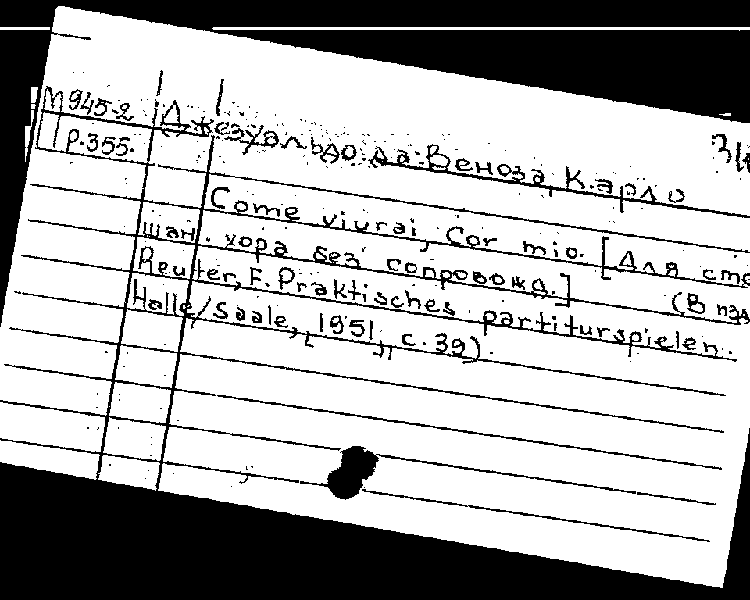 М 945-2 Джезуальдо да Веноза, Карло
Р.355.
Come viurai, Cor mio. [Для сме
шан. хора без сопровожд.] (В изд
Reuter, F. Praktisches partiturspielen.
Halle/Saale, 1951, с. 39).